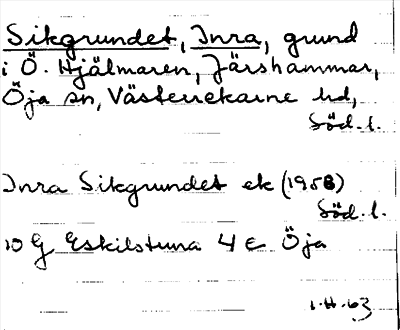 Sikgrundet, Inra, grund
i Ö. Hjälmaren, Järshammar,
Öja sn, Västerrekarne hd,
Söd. l.
Inra Sikgrundet ek (1958)
Söd. l.
10 G Eskilstuna 4 e Öja
1.11.63